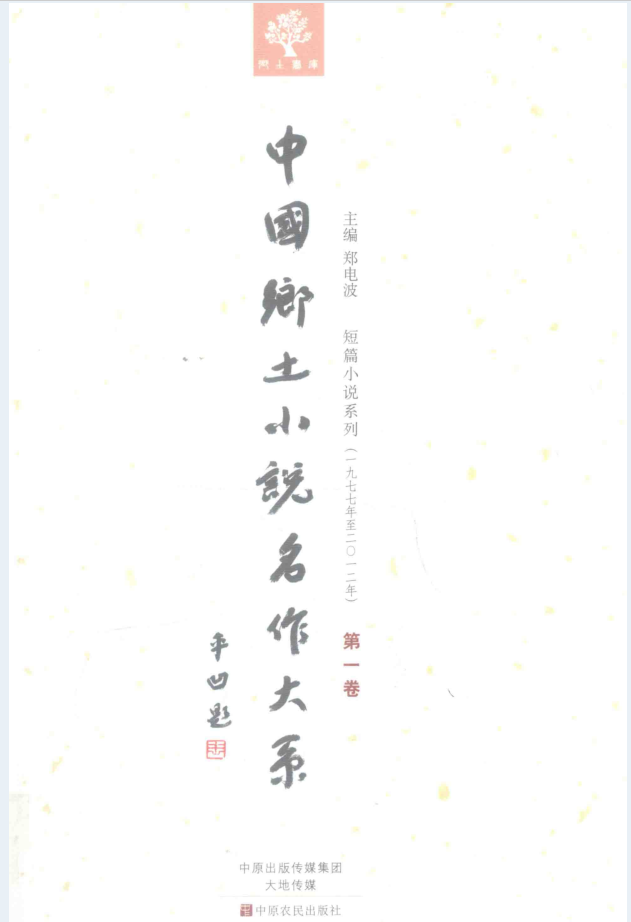 乡土书库
中國鄉土小説名作大系
主编 郑电波 短篇小说系列(一九七七年至二〇一二年) 第一卷
平凹题
中原出版传媒集团
大地传媒
中原农民出版社